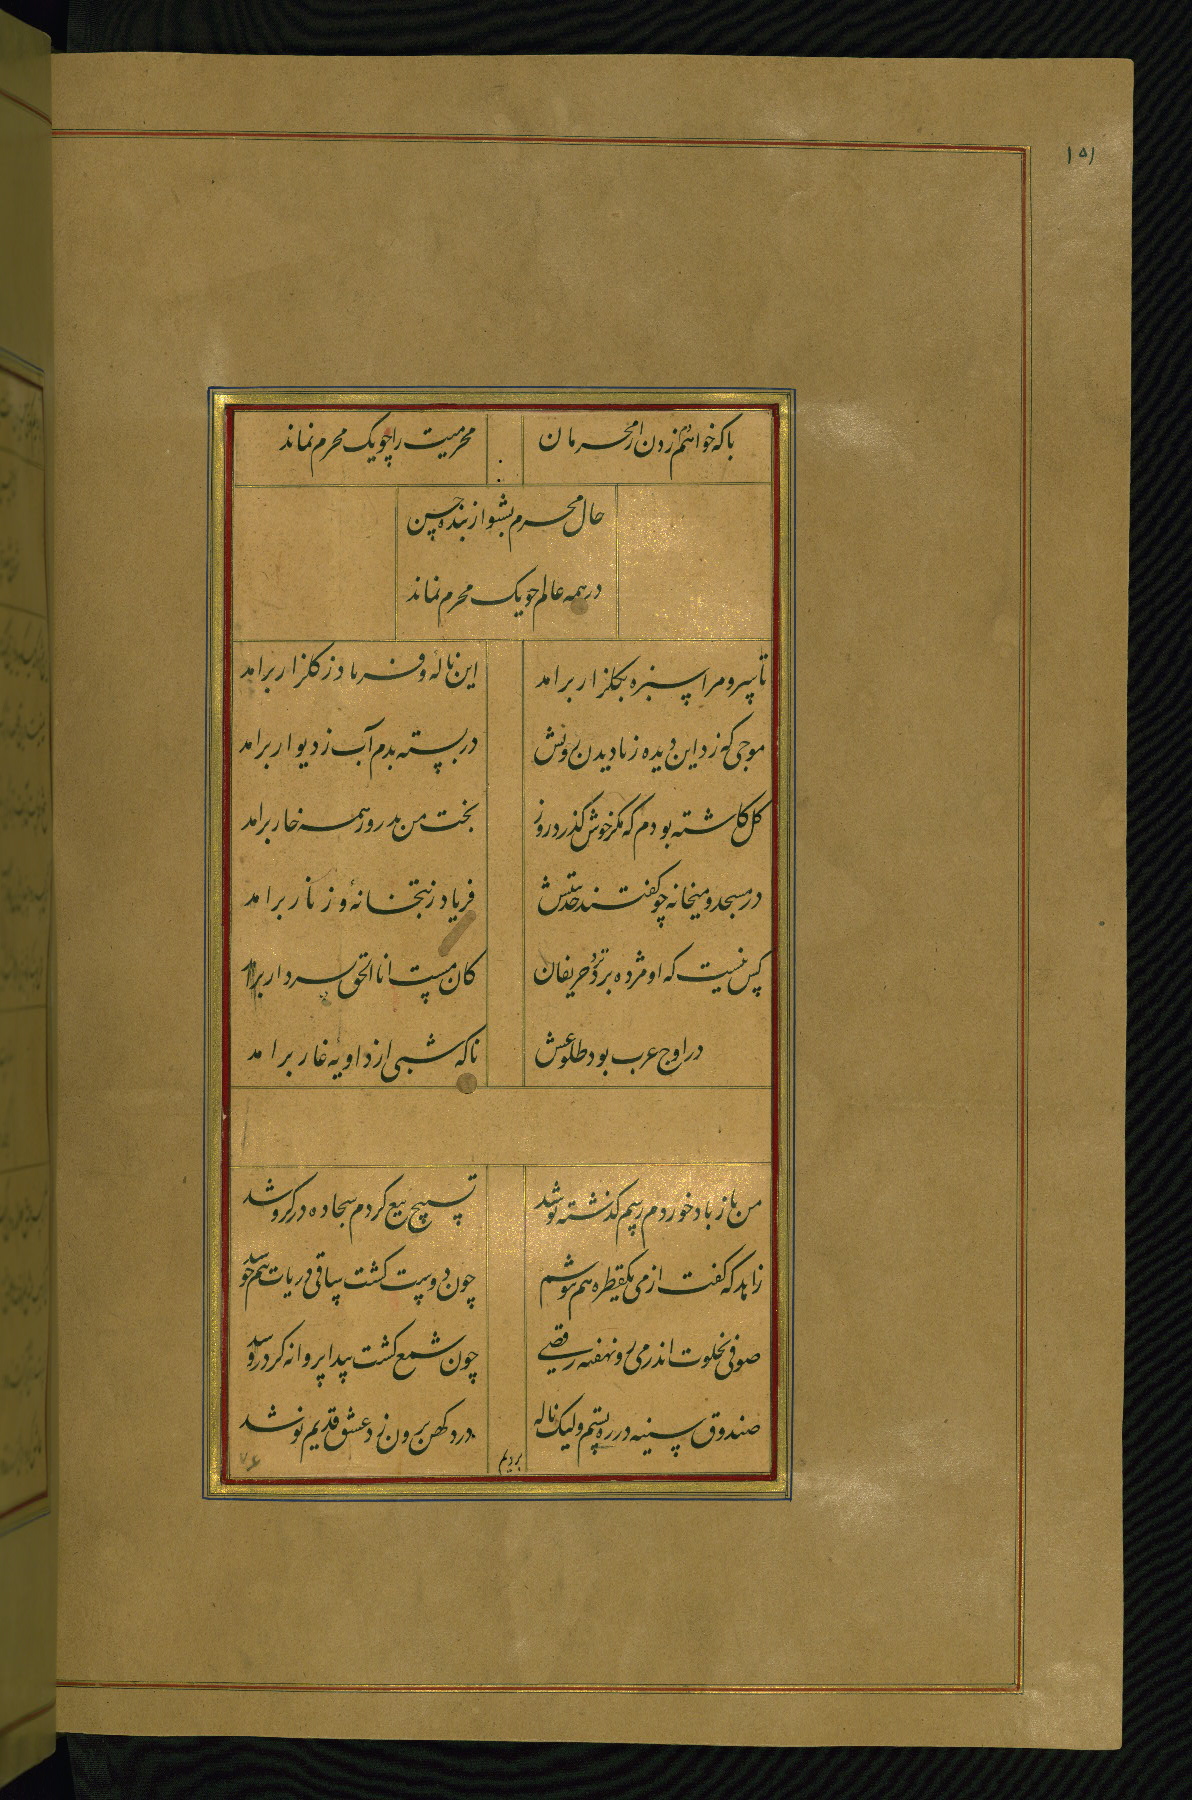 ۱۵۱
با که خواهم زدن از محرمان محرمیت را چو یک محرم نماند
حال محرم بشنو از بنده حسن
در همه عالم چو یک محرم نماند
تا سرو مرا سبزه بگلزار برامد این ناله و فریاد ز گلزار برامد
موجی که زد این دیده ز نادیدن رویش در بسته بدم آب ز دیوار برامد
گل کاشته بودم که مگر خوش گذرد روز بخت من بدروز همه خار برامد
در مسجد و میخانه چو گفتند حدیثش فریاد ز بتخانهٔ و زنار برامد
کس نیست که او مژده برد نزد حریفان کان مست انا الحق بسر دار برامد
در اوج عرب بود طلوعش ناگه شبی از زاویهٔ غار برامد
من باز باده خوردم رسم گذشته نو شد تسبیح بیع کردم سجاده در گرو شد
زاهد که گفت از می یکقطره هم ننوشم چون دوست گشت ساقی دریات هم
صوفی بخلوت اندر می رو نهفته رقصی چون شمع گشت پیدا پروانه کرد رو شد
صندوق سینه در ره بستم ولیک ناله درد کهن برون زد عشق قدیم نو شد
بردیم
۷۶